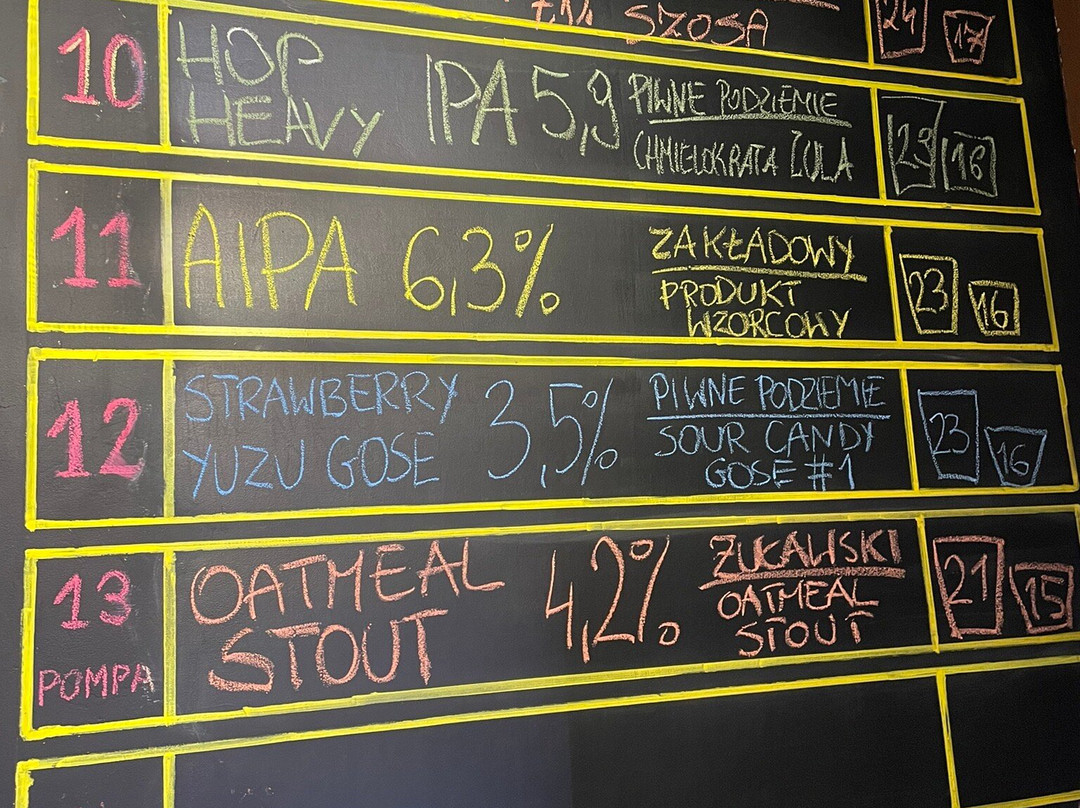 SZOSA
24 17
10
HOP HEAVY IPA 5,9
PIWNE PODZIEMIE
CHMIELOKRATA ZULA
23 16
11
AIPA 6,3%
ZAKŁADOWY
PRODUKT
WZORCOWY
23 16
12
STRAWBERRY
YUZU GOSE
3,5%
PIWNE PODZIEMIE
SOUR CANDY
GOSE #1
23 16
13
POMPA
OATMEAL
STOUT
4,2%
ZUCAWSKI
OATMEAL
STOUT
21 15